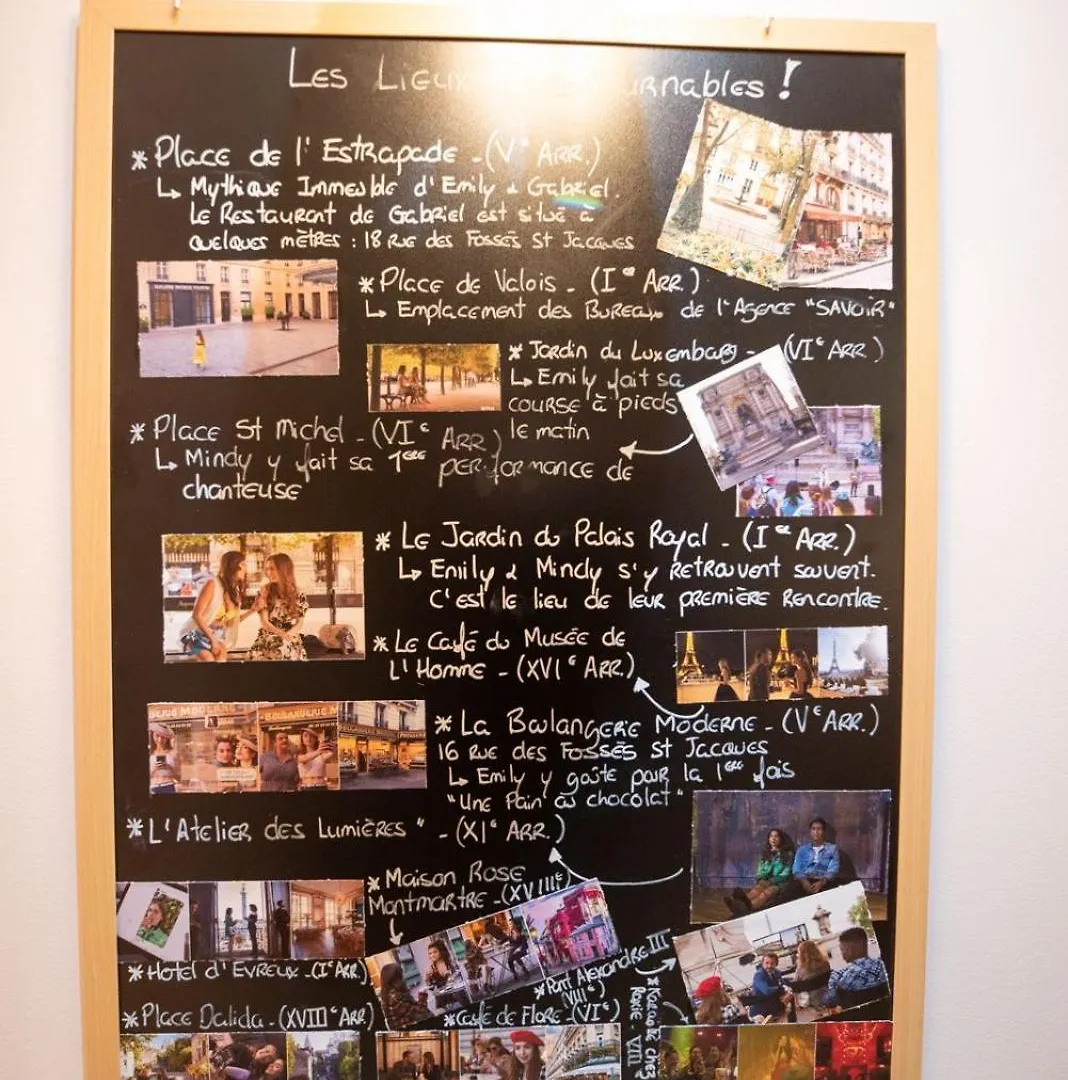 Les Lieux !
* Place de l'Estrapade - (Ve Arr.)
↳ Mythique Immeuble d'Emily & Gabriel.
Le Restaurant de Gabriel est situé à
quelques mètres : 18 rue des Fossés St Jacques
* Place de Valois - (Ier Arr.)
↳ Emplacement des Bureaux de l'Agence "SAVOIR"
* Jardin du Luxembourg - (VIe Arr)
↳ Emily fait sa
course à pieds
le matin
* Place St Michel - (VIe Arr)
↳ Mindy y fait sa 1ère performance de
chanteuse
* Le Jardin du Palais Royal - (Ier Arr.)
↳ Emily & Mindy s'y retrouvent souvent.
C'est le lieu de leur première rencontre.
* Le Café du Musée de
l'Homme - (XVIe Arr.)
* La Boulangerie Moderne - (Ve Arr.)
16 rue des Fossés St Jacques
↳ Emily y goûte pour la 1ère fois
"Une Pain au chocolat"
* L'Atelier des Lumières" - (XIe Arr.)
* Maison Rose
Montmartre - (XVIIIe)
* Hotel d'Evreux - (Ier Arr)
* Pont Alexandre III
(VIIIe)
* Place Dalida - (XVIIIe Arr)
* Café de Flore - (VIe)
* Karaoké chez
BOULANGERIE MODERNE